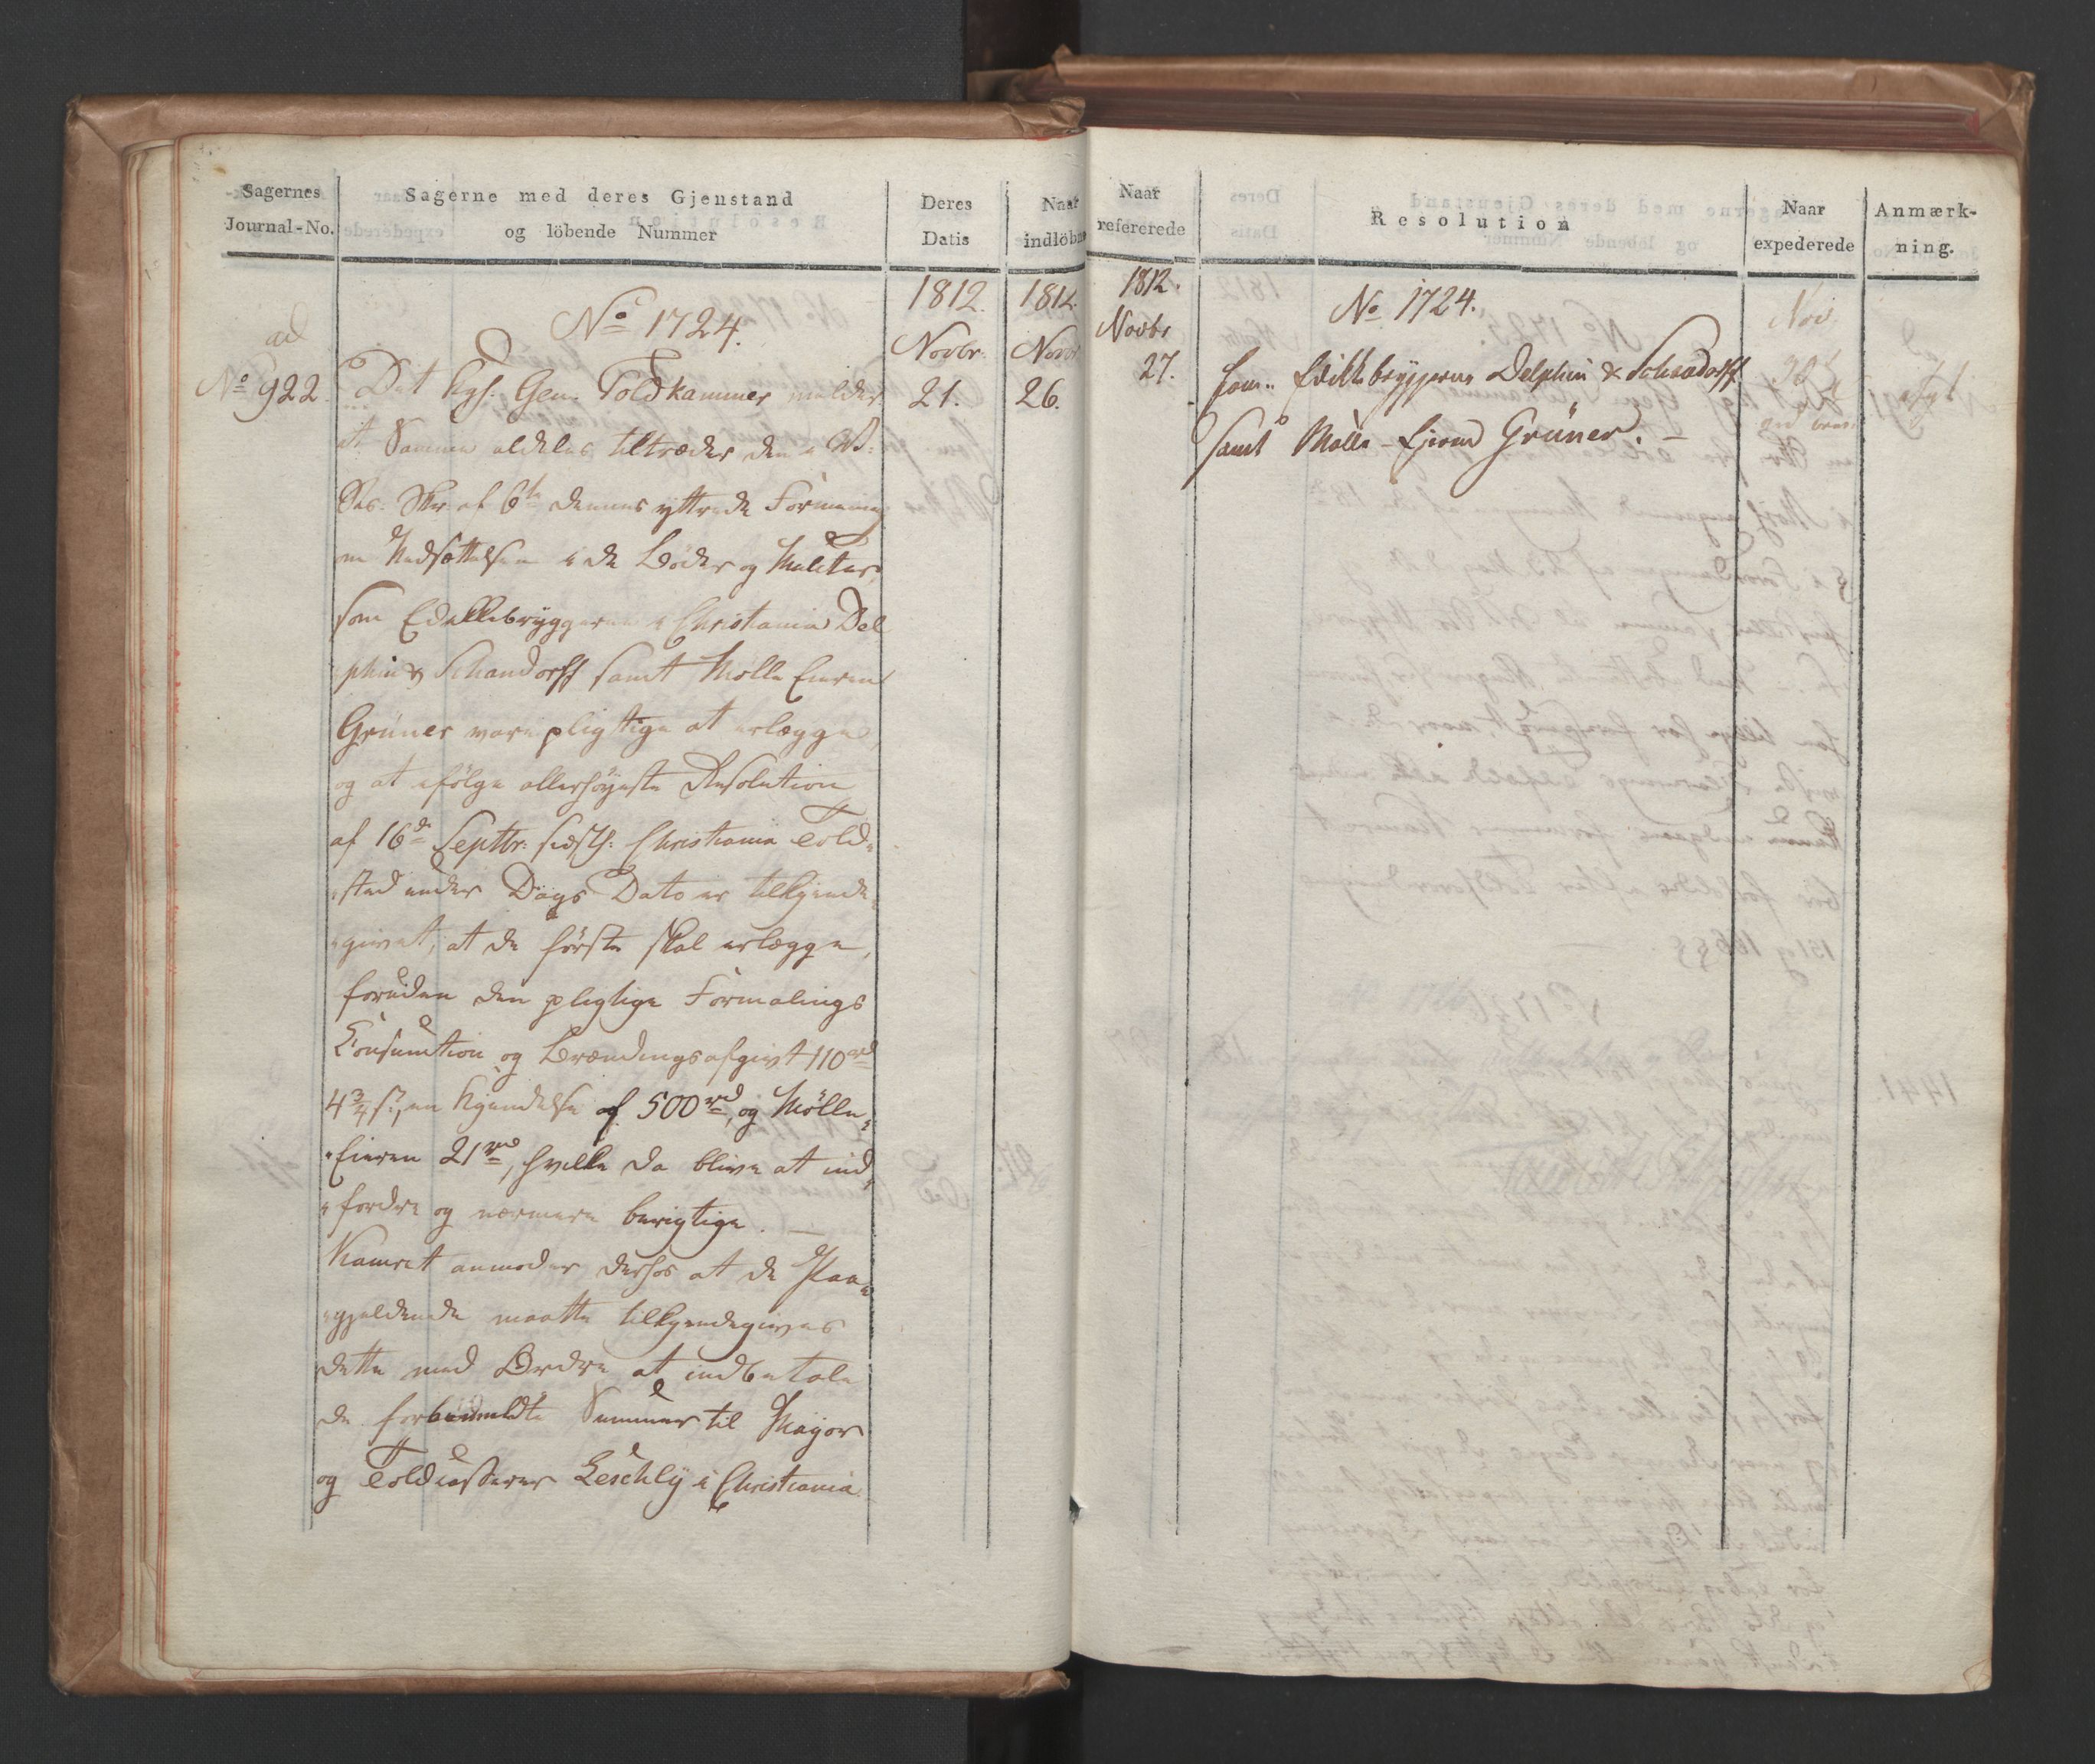 Sagernes
Journal-No.
Sagerne med deres Gjenstand
og löbende Nummer
Deres
Datis
Naar
indlöbne
1812.
1812.
No 1724.
Novbr.
Novbr
ad
No 922.
Det Kgl. Gen. Toldkammer melder
21.
26.
at Samme aldeles tiltræder den i
Skr. af 6te dennes yttrede Formening
om Nedsættelsen i de Bøder og Mulcter,
som Edikkebryggerne i Christiania Del
phin & Schandorff samt Mølle Eieren
Grüner vare pligtige at erlægge,
og at ifölge allerhöyeste Resolution
af 16de Septbr. sidstl. Christiania Told-
sted under Dags Dato er tilkjende-
givet, at de første skal erlægge,
foruden den pligtige Formalings
Consumtion og Brændingsafgivt 110 rd
4 3/4 s., en Kjendelse af 500 rd, og Mölle-
Eieren 21 rd, hvilke da blive at ind-
fordre og nærmere berigtige. —
Kamret anmoder derhos at de Paa-
gjeldende maatte tilkjendegives
dette med Ordre at indbetale
de forbemeldte Summer til Major
og Toldcasserer Leschly i Christiania
Naar
refererede
Resolution
Naar
expederede
Anmærk-
ning.
1812.
No 1724.
Nov.
Novbr
27.
Com. Edikkebryggerne Delphin & Schandorff
samt Mølle-Ejerne Grüner. —